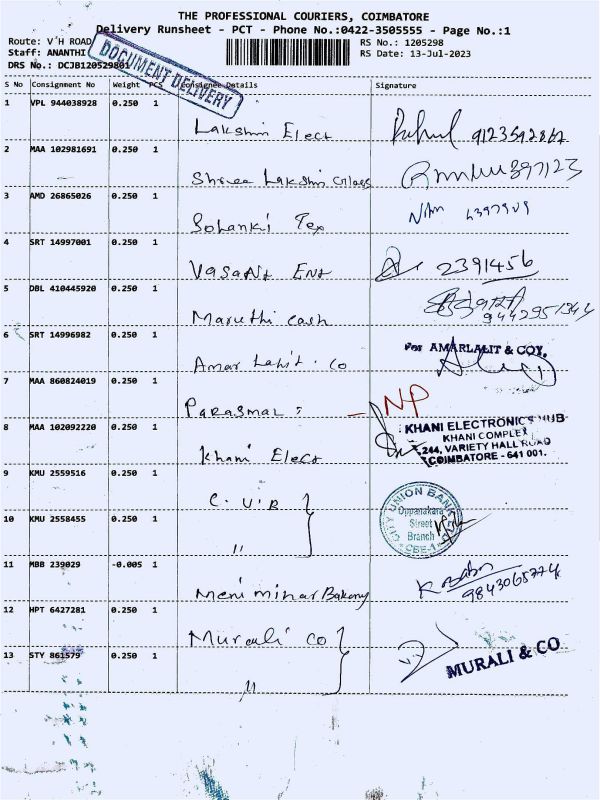 THE PROFESSIONAL COURIERS, COIMBATORE
Delivery Runsheet - PCT - Phone No.:0422-3505555 - Page No.:1
Route: V'H ROAD
RS No.: 1205298
Staff: ANANTHI
RS Date: 13-Jul-2023
DRS No.: DCJB120529801
DOCUMENT DELIVERY
S No Consignment No Weight PCS Consignee Details Signature
1 VPL 944038928 0.250 1
Lakshmi Elect 9123592862
2 MAA 102981691 0.250 1
Shree Lakshmi Glass
3 AMD 26865026 0.250 1
Solanki Tex
4 SRT 14997001 0.250 1
Vasant Ent 2391456
5 DBL 410445920 0.250 1
Maruthi cash
6 SRT 14996982 0.250 1
For AMARLALIT & COY.
Amar Lalit. Co
7 MAA 860824019 0.250 1
Parasmal : - NP
8 MAA 102092220 0.250 1
KHANI ELECTRONICS HUB
KHANI COMPLEX
244, VARIETY HALL ROAD
COIMBATORE - 641 001.
Khani Elect
9 KMU 2559516 0.250 1
C. U. B
CITY UNION BANK
Oppanakara
Street
Branch
CBE-1
10 KMU 2558455 0.250 1
"
11 MBB 239029 -0.005 1
Meni minar Bakery 9843065774
12 HPT 6427281 0.250 1
Murali Co
MURALI & CO
13 STY 861579 0.250 1
"